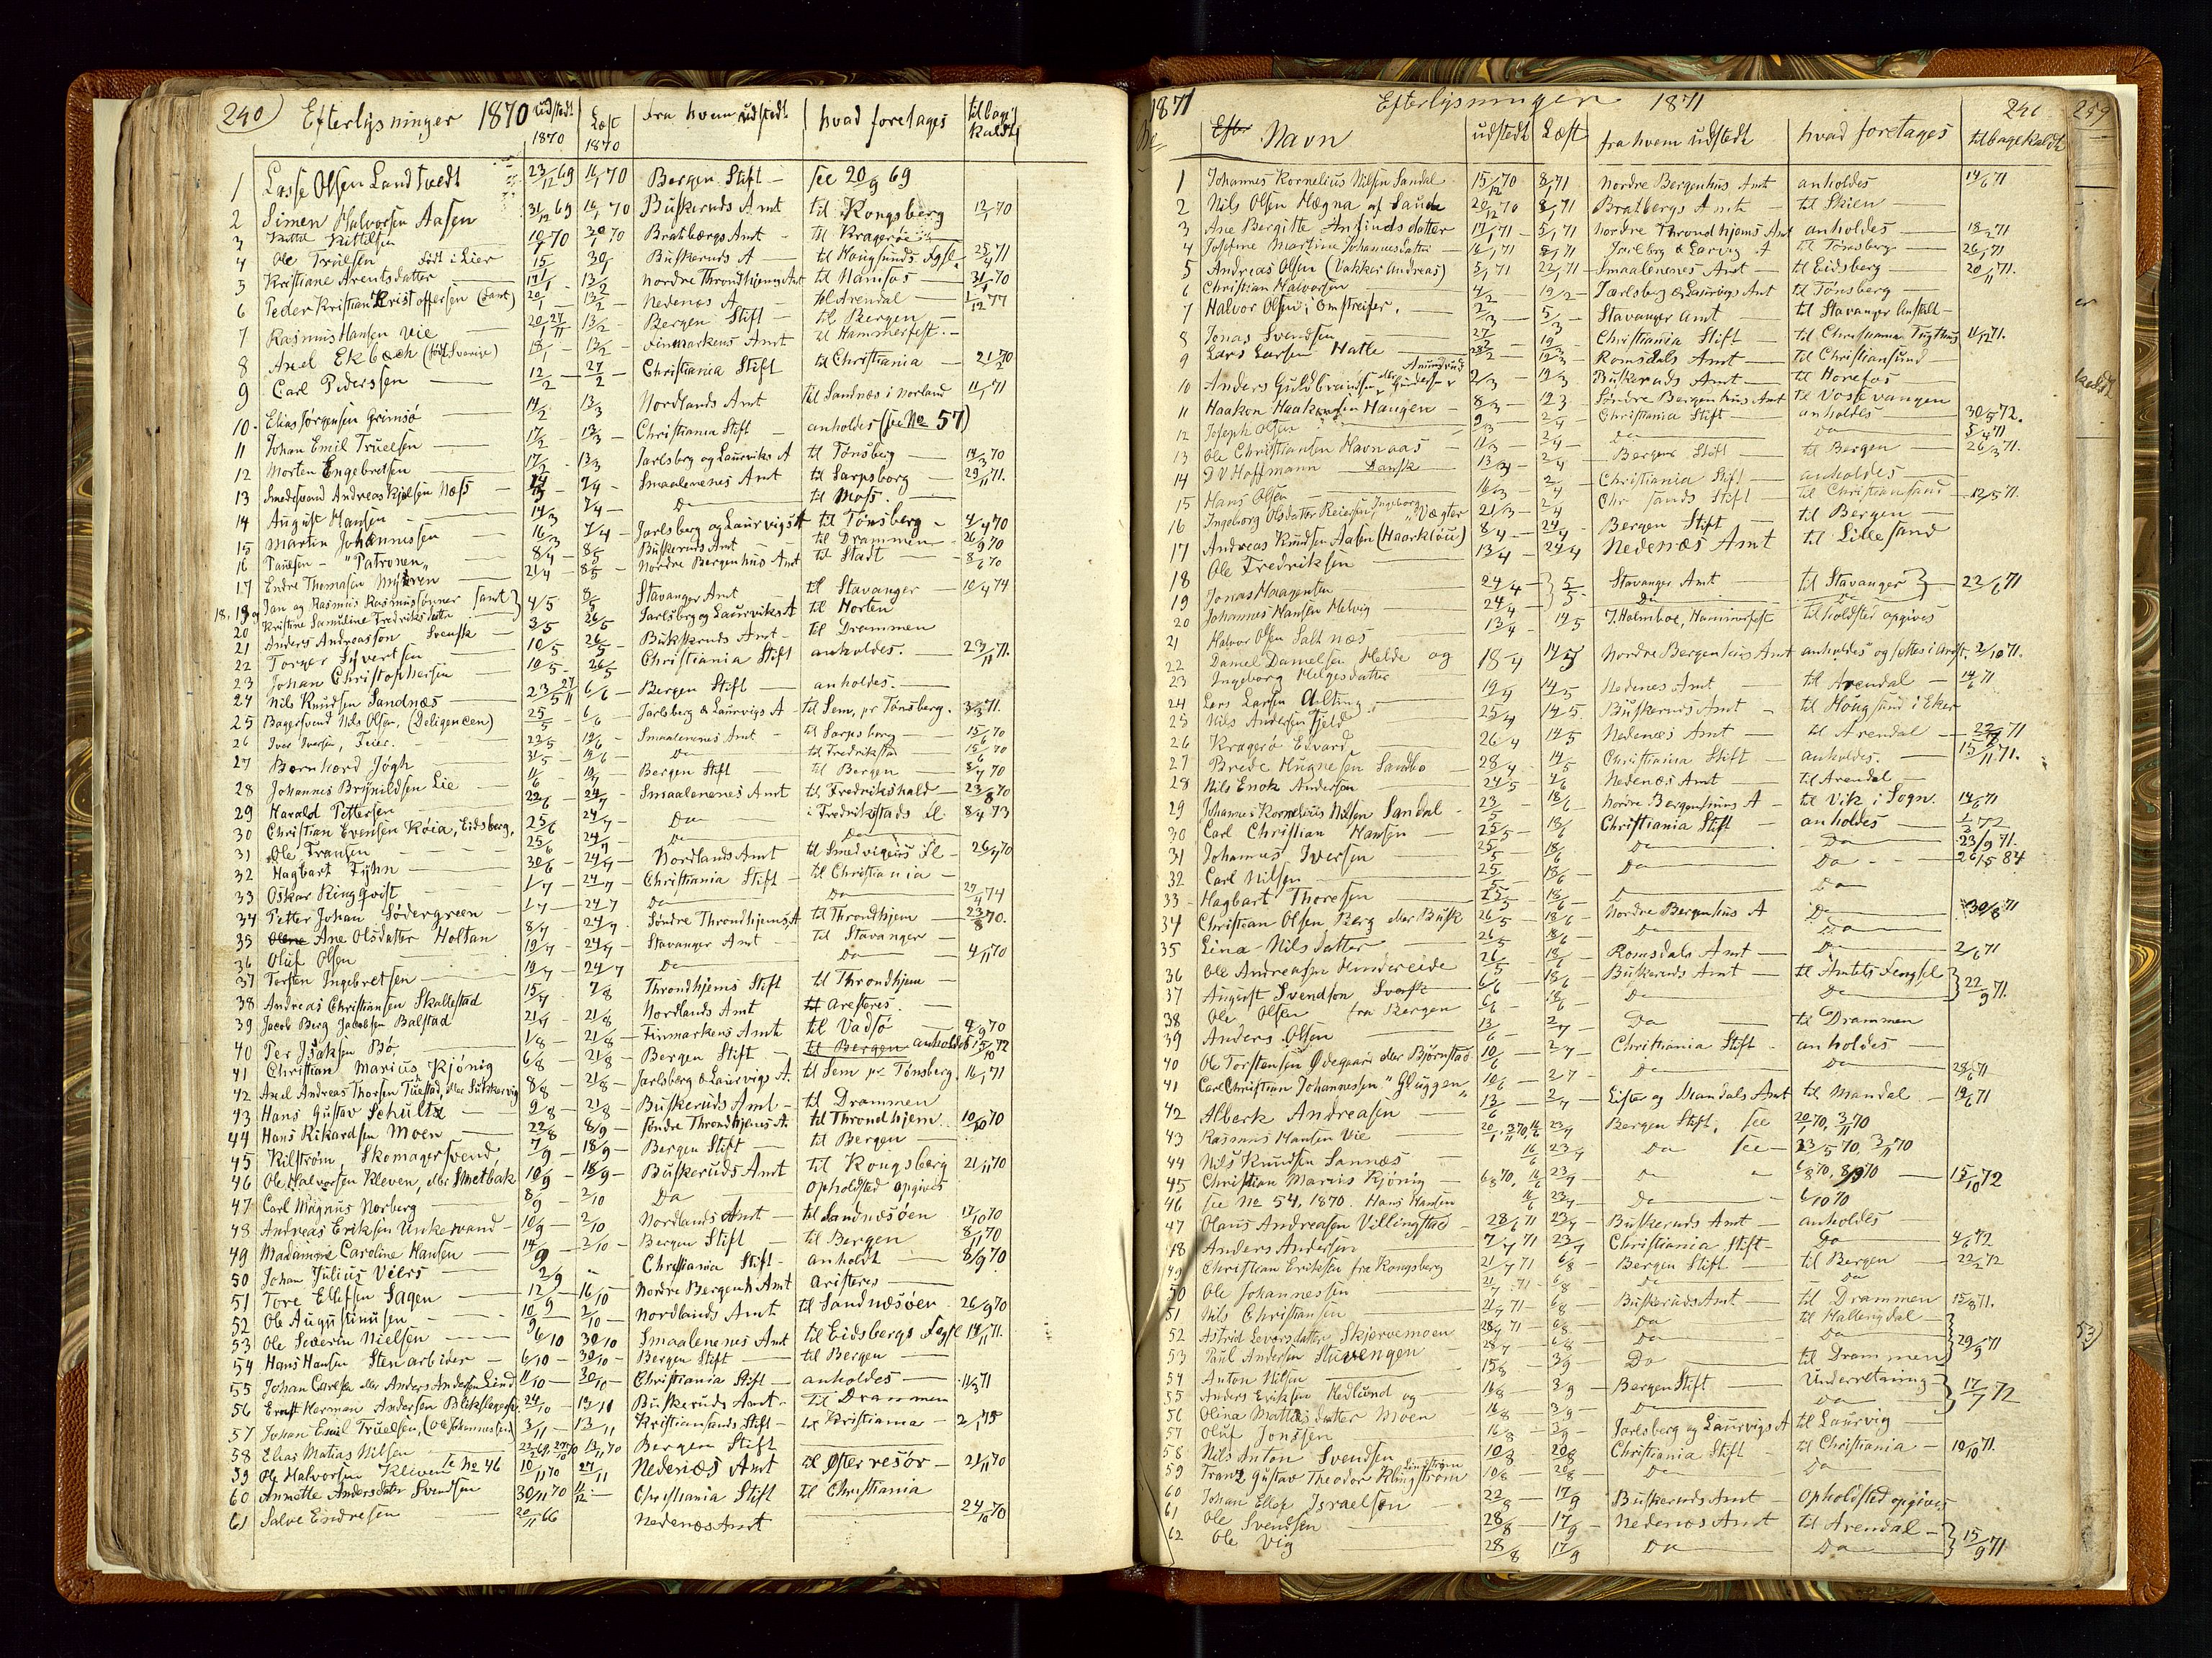 240) Efterlysninger 1870 udstedt 1870 Læst 1870 fra hvem udstedt hvad foretages tilbagekaldt
1 Lasse Olsen Landtvedt 23/12 69 16/1 70 Bergen Stift — see 20/9 69
2 Simen Halvorsen Aasen 31/12 69 16/1 70 Buskeruds Amt til Kongsberg 12/1 70
3 Kittil Kittilsen 10/1 70 30/1 70 Bratsbergs Amt - til Kragerøe
4 Ole Truelsen født i Lier 15/1 30/1 Buskeruds A — til Hougsunds Fgsl. 25/4 71
5 Kristiane Arentsdatter 17/1 13/2 Nordre Throndhjems Amt til Namsos 31/1 70
6 Peder Kristian Kristoffersen 20/1 13/2 Nedenes A til Arendal 1/12 77
7 Rasmus Hansen Vie 20/1 27/11 13/2 Bergen Stift til Bergen
8 Axel Ekbech (født Sverige) 18/1 13/2 Finmarkens Amt til Hammerfest. —
9 Carl Pedersen 12/2 27/2 Christiania Stift til Christiania - 21/2 70
10. Elias Jørgensen Grimsø 14/2 13/3 Nordlands Amt til Sandnæs i Norland 11/1 71
11 Johan Emil Truelsen 17/2 13/3 Christiania Stift anholdes (see No 57)
12 Morten Engebretsen 17/2 13/3 Jarlsberg og Laurviks A til Tønsberg 14/3 70
13 Smedesvend Andreas Kjølsen Næss 7/4 Smaalenenes Amt til Sarpsborg 29/11 71.
14 August Hansen 14/3 7/4 Do til Moss.
15 Martin Johannissen 16/3 7/4 Jarlsberg og Laurvigs A til Tønsberg - 4/4 70
16 Paulsen - "Patronen" 8/4 8/5 Buskeruds Amt til Drammen 26/9 70
17 Endre Thomasen Myhren 21/4 8/5 Nordre Bergenhus Amt til Stadt
18, 19 og Jan og Rasmus Rasmussønner samt 4/5 8/5 Stavanger Amt til Stavanger 10/4 74
20 Kristine Samuline Fredriksdatter 3/5 26/5 Jarlsberg og Laurviks A til Horten
21 Anders Andreasson Svensk 10/5 26/5 Buskeruds Amt - til Drammen
22 Torger Syvertsen 10/5 26/5 Christiania Stift anholdes. 23/11 71.
23 Johan Christophersen
24 Nils Knudsen Sandnæs 6/6 Bergen Stift anholdes. -
25 Bagersvend Nils Olsen, (Deligencen) 25/5 6/6 Jarlsberg & Laurvigs A til Sem, pr Tønsberg.
26 Iver Iversen, Feier. 23/5 19/6 Smaalenenes Amt til Sarpsborg 15/6 70
27 Bernhard Høgh 31/5 19/6 Do til Fredrikstad 15/6 70
28 Johannes Brynildsen Lie Bergen Stift til Bergen 5/7 70
29 Harald Pettersen 22/6 24/7 Smaalenenes Amt til Fredrikshald 23/8 70
30 Christian Evensen Køia, Eidsberg. 25/6 24/7 Do i Fredrikstads 8/4 73
31 Ole Fransen 25/6 24/7 Do Do
32 Hagbart Fyhn 30/6 24/7 Nordlands Amt til Smedvigens Fl 26/7 70
33 Oskar Ringqvist 1/7 24/7 Christiania Stift til Christiania
34 Petter Johan Södergreen 1/7 24/7 Do Do 27/4 74
35 Ane Olsdatter Holtan 8/7 24/7 Søndre Throndhjems A til Throndhjem 23/8 70.
36 Oluf Olsen 19/7 24/7 Stavanger Amt til Stavanger
37 Torsten Ingebretsen 19/7 24/7 Do Do 4/11 70
38 Andreas Christiansen Skallestad 15/7 7/8 Throndhjems Stift til Throndhjem
39 Jacob Berg Jacobsen Balstad 21/7 21/8 Nordlands Amt Arresteres.
40 Per Isaksen Bø 1/8 21/8 Finmarkens Amt til Vadsø 4/9 70
41 Christian Marius Kjönig 6/8 21/8 Bergen Stift til Bergen anholdes 15/10 72
42 Axel Andreas Thorsen 8/8 21/8 Jarlsberg & Laurvigs A. til Sem pr Tønsberg. 16/1 71
43 Hans Gustav Schultz 9/8 21/8 Buskeruds Amt til Drammen
44 Hans Rikardsen Moen 22/8 8/9 Søndre Throndhjems A. til Throndhjem 10/10 70
45 Kilström Skomagersvend 7/9 18/9 Bergen Stift til Bergen
46 Ole Halvorsen Kleven, eller Smetbak 10/9 18/9 Buskeruds Amt til Kongsberg 21/11 70
47 Carl Magnus Norberg 8/9 2/10 Do Opholdsted opgives
48 Andreas Eriksen Unkervand 10/9 2/10 Nordlands Amt til Sandnæsöen 17/10 70
49 Madamme Caroline Hansen 14/9 2/10 Bergen Stift til Bergen 8/11 70
50 Johan Julius Veers 2/9 Christiania Stift anholdt 8/9 70
51 Tore Ellefsen Sagen 12/9 16/10 Nordre Bergenh Amt aristeres
52 Ole Augustinusen 10/9 2/10 Nordlands Amt til Sandnæsöen 26/9 70
53 Ole Severin Nielsen 6/10 30/10 Smaalenenes Amt til Eidsbergs Fgsl 14/11 71.
54 Hans Hansen Stenarbeider 6/10 30/10 Bergen Stift til Bergen
55 Johan Carlsen eller Anders Andersen Lind 11/10 30/10 Christiania Stift anholdes 11/3 71
56 Ernst Herman Andersen 24/10 13/11 Buskeruds Amt til Drammen
57 Johan Emil Truelsen, (Ole Johannessen) 3/11 13/11 Kristiansands Stift til Kristiania
58 Elias Matias Nilsen 13/11 70 Bergen Stift
59 Ole Halvorsen Kleven se No 46 10/11 70 27/11 Nedenæs Amt til Østerresør 21/11 70
60 Annette Andersdatter Svendsen 30/11 70 11/12 Christiania Stift til Christiania
61 Salve Endresen 20/11 66 Nedenæs Amt 24/10 70
1871 Efterlysninger 1871 241
Navn udstedt Læst fra hvem udstedt hvad foretages tilbagekaldt
1 Johannes Kornelius Nilsen Sandal 15/12 70 8/1 71 Nordre Bergenhus Amt anholdes 14/6 71
2 Nils Olsen Hægna af Saude 20/12 70 8/1 71 Bratbergs Amt til Skien
3 Ane Bergitte Arfindsdatter 5/1 71 Nordre Throndhjems Amt anholdes 18/2 71
4 Josefine Martine Johannesdatter 5/1 71 Jarlsberg & Larvig A til Tønsberg 26/1 71
5 Andreas Olsen (Vakker Andreas) 5/1 71 22/1 71 Smaalenenes Amt til Eidsberg 20/11 71.
6 Christian Halvorsen 4/2 19/2 Jarlsberg & Laurvigs Amt til Tønsberg
7 Halvor Olsen, Omstreifer. 2/3 5/3 Stavanger Amt til Stavanger Anstalt
8 Jonas Svendsen 27/2 19/3 Christiania Stift til Christiania Tugthus 11/12 71.
9 Lars Larsen Hatle 28/2 12/3 Romsdals Amt til Christiansund
10 Anders Guldbrandsen eller Gundersen 2/3 19/3 Buskeruds Amt til Hönefos
11 Haakon Haakonsen Haugen 8/3 19/3 Søndre Bergenhus Amt til Vossevangen
12 Joseph Olsen 9/3 2/4 Christiania Stift anholdes 30/5 72.
13 Ole Christiansen Havnaas 11/3 2/4 Do Do 5/4 71
14 D V Hoffmann Dansk 13/3 2/4 Bergens Stift til Bergen 26/3 71.
15 Hans Olsen 16/3 2/4 Christiania Stift anholdes
16 Ingeborg Olsdatter Reiersen, Ingeborg "Vægter 21/3 2/4 Chr sands Stift til Christiansand 12/5 71.
17 Andreas Knudsen Aasen (Haarklou) 8/4 24/4 Bergen Stift til Bergen
18 Ole Fredriksen 13/4 24/4 Nedenæs Amt til Lillesand
19 Jonas Haagensen 24/4 5/5 Stavanger Amt til Stavanger 22/6 71
20 Johannes Hansen Helvig 24/4 Do Do
21 Halvor Olsen Saltnæs 13/4 14/5 J. Holmboe, Hammerfest tilholdsted opgives
22 Daniel Danielsen Melde og 18/4 14/5 Nordre Bergenhus Amt anholdes og settes i Arest. 2/10 71.
23 Ingeborg Helgesdatter
24 Lars Larsen Alting 19/4 14/5 Nedenes Amt til Arendal 14/6 71
25 Nils Andersen Fjeld 25/4 14/5 Buskeruds Amt til Hougsund i Eker
26 Kragerø Edvard 26/4 14/5 Nedenæs Amt til Arendal
27 Brede Hugnesen Sandbo 28/4 14/5 Christiania Stift anholdes. 15/11 71.
28 Nils Enok Andersen 24/5 4/6 Nedenæs Amt til Arendal
29 Johannes Kornelius Nilsen Sandal 23/5 18/6 Nordre Bergenhuus A til Vik i Sogn. 14/6 71
30 Carl Christian Hansen 25/5 18/6 Christiania Stift anholdes 1/2 72
31 Johannes Iversen 25/5 18/6 Do Do 23/9 71.
32 Carl Nilsen 25/5 18/6 Do Do 26/5 84
33 Hagbart Thoresen 25/5 18/6 Do Do
34 Christian Olsen Berg eller Busk 26/5 18/6 Nordre Bergenhus A Do 30/8 71
35 Lina Nilsdatter 26/5 18/6 Do Do
36 Ole Andreasen Hundereide 26/5 18/6 Romsdals Amt Do 2/6 71
37 August Svendson Svensk 6/6 18/6 Buskeruds Amt til Amtets Fengsel 22/9 71.
38 Ole Olsen fra Bergen 6/6 18/6 Do Do
39 Anders Olsen 13/6 2/7 Do til Drammen
40 Ole Torstensen Ødegaard eller Bjørnstad 10/6 2/7 Christiania Stift anholdes
41 Carl Christian Johannesen "Gluggen" 10/6 2/7 Do Do 28/6 71
42 Albert Andreasen 13/6 2/7 Lister og Mandals Amt til Mandal 19/6 71
43 Rasmus Hansen Vie 23/7 Bergen Stift, see 20/1 70, 3/11 70
44 Nils Knudsen Sannæs 16/6 23/7 Do see 23/5 70, 3/11 70
45 Christian Marius Kjönig 6/8 70, 16/6 23/7 15/10 72
46 see No 54, 1870. Hans Hansen 16/6 23/7 Do 6/10 70
47 Olaus Andreasen Villingstad 28/6 71 23/7 Buskeruds Amt anholdes
48 Anders Andersen 7/7 71 23/7 Christiania Stift Do
49 Christian Eriksen fra Kongsberg 21/7 71 6/8 Bergen Stift til Bergen 22/2 72
50 Ole Johannessen 21/7 71 6/8 Do Do
51 Nils Christiansen 21/7 71 6/8 Buskeruds Amt til Drammen 15/8 71.
52 Astrid Leversdatter Skjervemoen 28/7 71 6/8 Do til Hallingdal
53 Paul Andersen Stuvengen 28/7 6/8 Do Do 29/9 71
54 Anton Nilsen 15/8 3/9 Do til Drammen
55 Anders Eriksen Hedlund og 16/8 3/9 Bergen Stift Underretning 17/7 72
56 Olina Mattisdatter Moen 16/8 3/9 Do Do
57 Oluf Jonssen 16/8 3/9 Jarlsberg og Laurvigs A til Laurvig
58 Nils Anton Svendsen 10/8 20/8 Christiania Stift til Christiania 10/10 71.
59 Frantz Gustav Theodor Klingström 10/8 20/8 Do Do
60 Johan Ellef Israelsen 22/8 17/9 Buskeruds Amt Opholdsted opgives
61 Ole Svendsen 28/8 17/9 Nedenæs Amt til Arendal 15/9 71
62 Ole Vig 28/8 17/9 Do Do
259